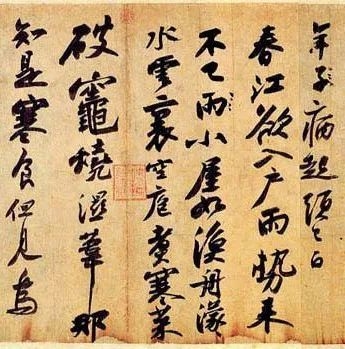 年子病起頭已白
春江欲入戶雨勢来
不已雨小屋如漁舟濛
水雲裏空庖煮寒菜
破竈燒濕葦那
知是寒食但見烏